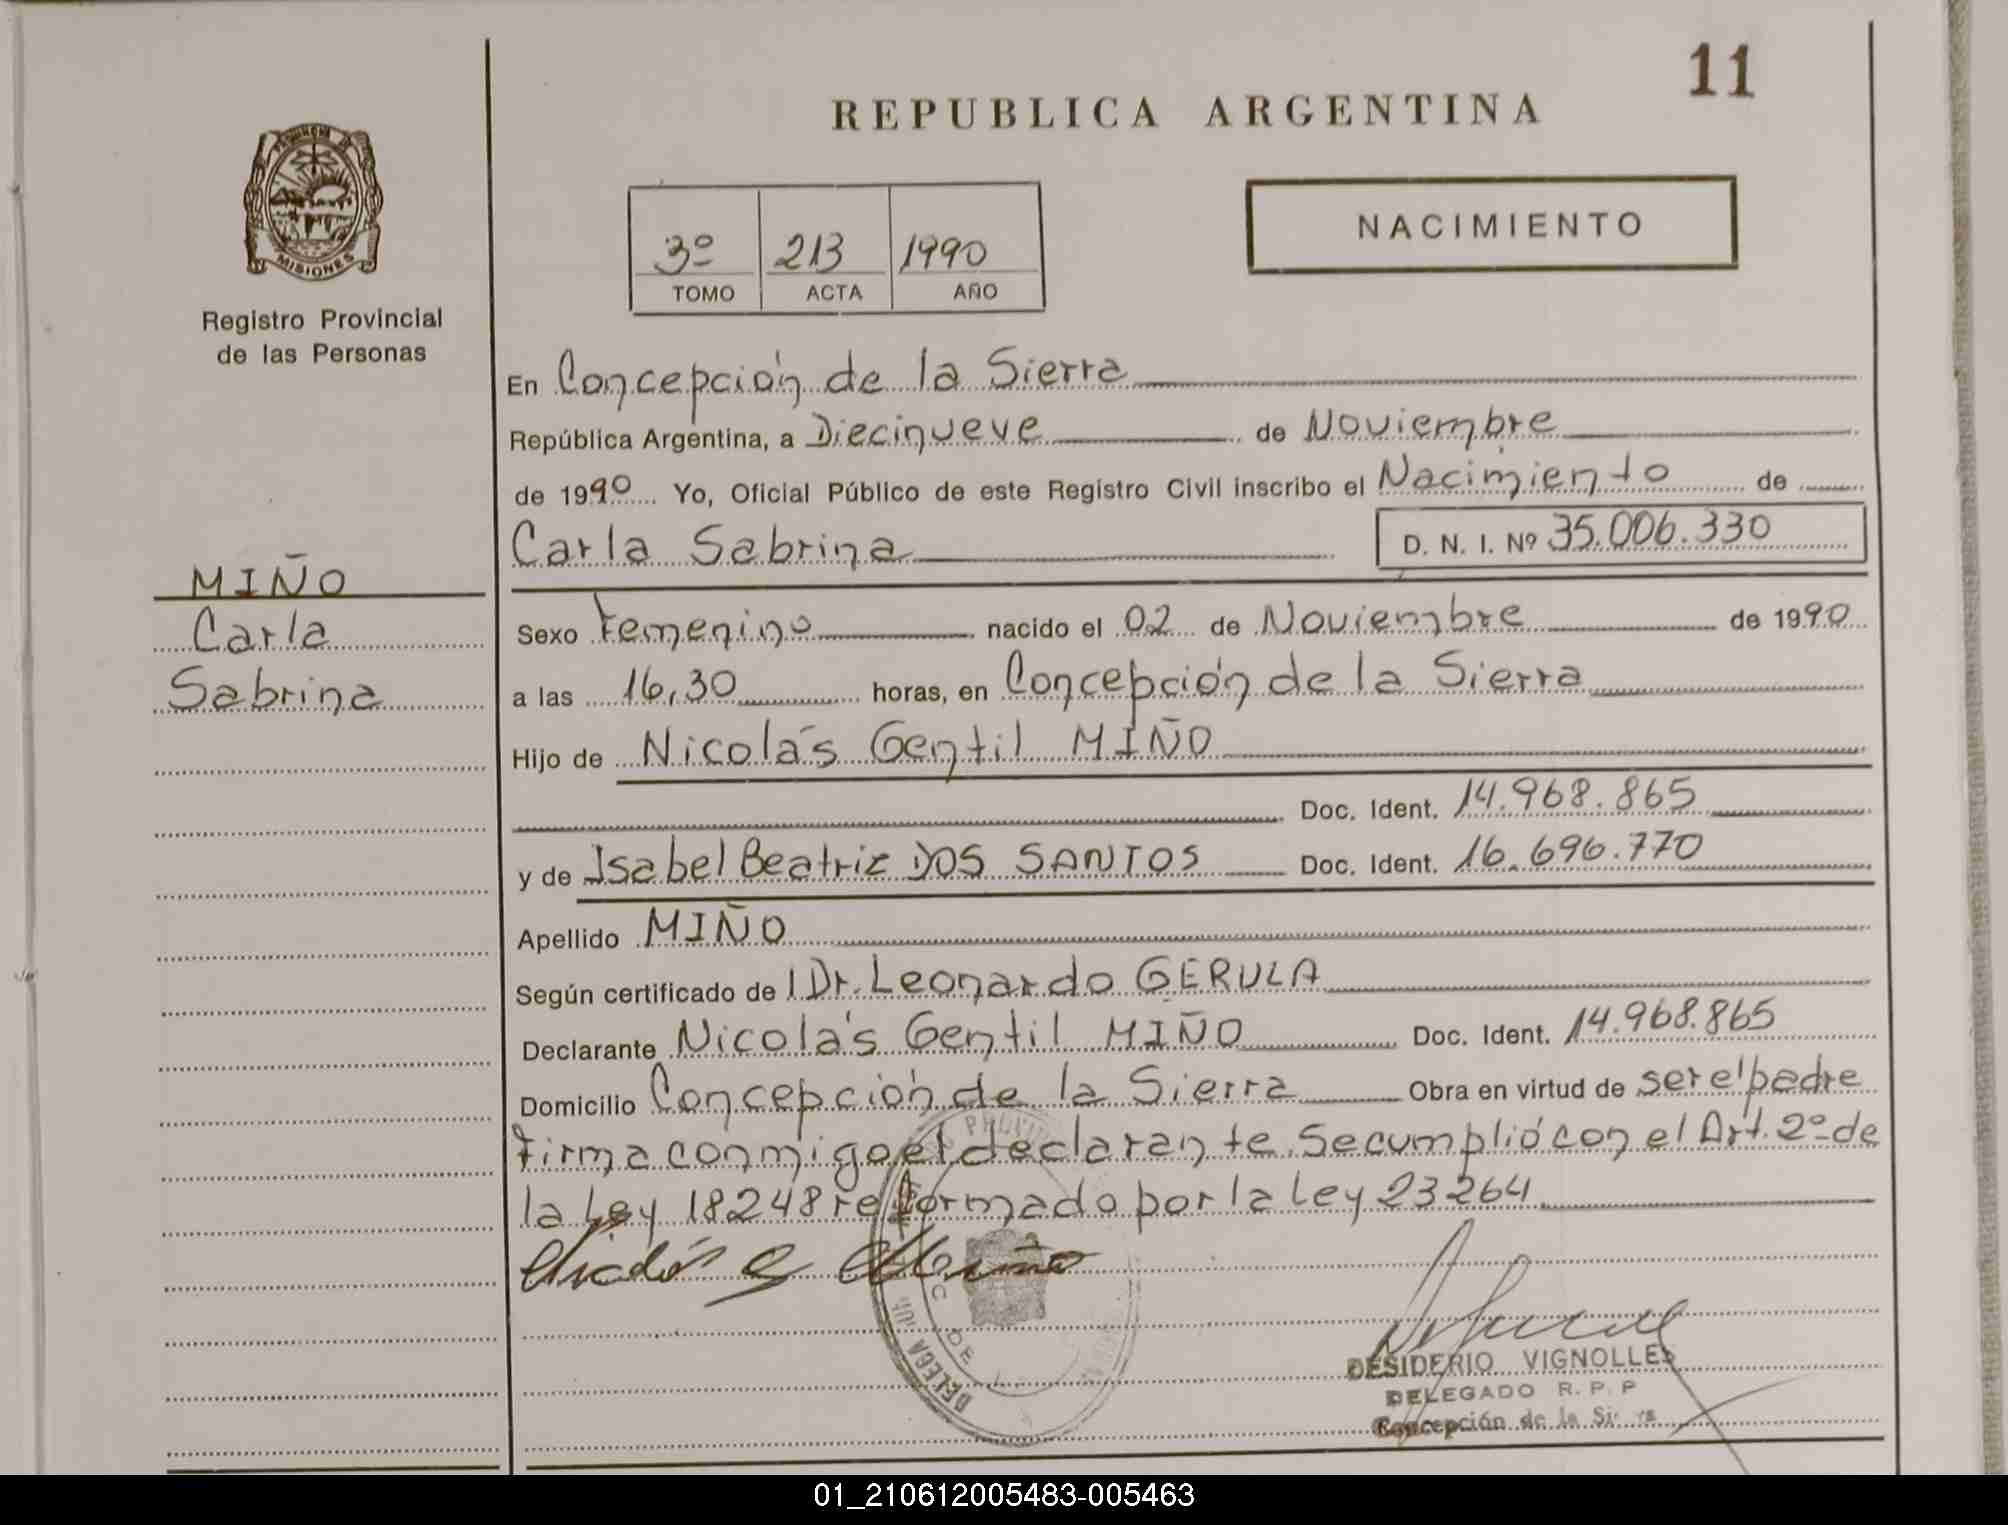 11
REPUBLICA ARGENTINA
PROVINCIA DE
MISIONES
Registro Provincial
de las Personas
3º 213 1990
TOMO ACTA AÑO
NACIMIENTO
En Concepción de la Sierra
República Argentina, a Diecinueve de Noviembre
de 1990 Yo, Oficial Público de este Registro Civil inscribo el Nacimiento de
Carla Sabrina D. N. I. Nº 35.006.330
MIÑO
Carla
Sabrina
Sexo Femenino nacido el 02 de Noviembre de 1990
a las 16,30 horas, en Concepción de la Sierra
Hijo de Nicolás Gentil MIÑO
Doc. Ident. 14.968.865
y de Isabel Beatriz DOS SANTOS Doc. Ident. 16.696.770
Apellido MIÑO
Según certificado de l Dr. Leonardo GERULA
Declarante Nicolás Gentil MIÑO Doc. Ident. 14.968.865
Domicilio Concepción de la Sierra Obra en virtud de ser el padre
Firma conmigo el declarante. Se cumplió con el Art. 2º de
la Ley 18248 reformado por la Ley 23264
Nicolás G Miño
DESIDERIO VIGNOLLES
DELEGADO R. P. P
Concepción de la Sierra
01_210612005483-005463